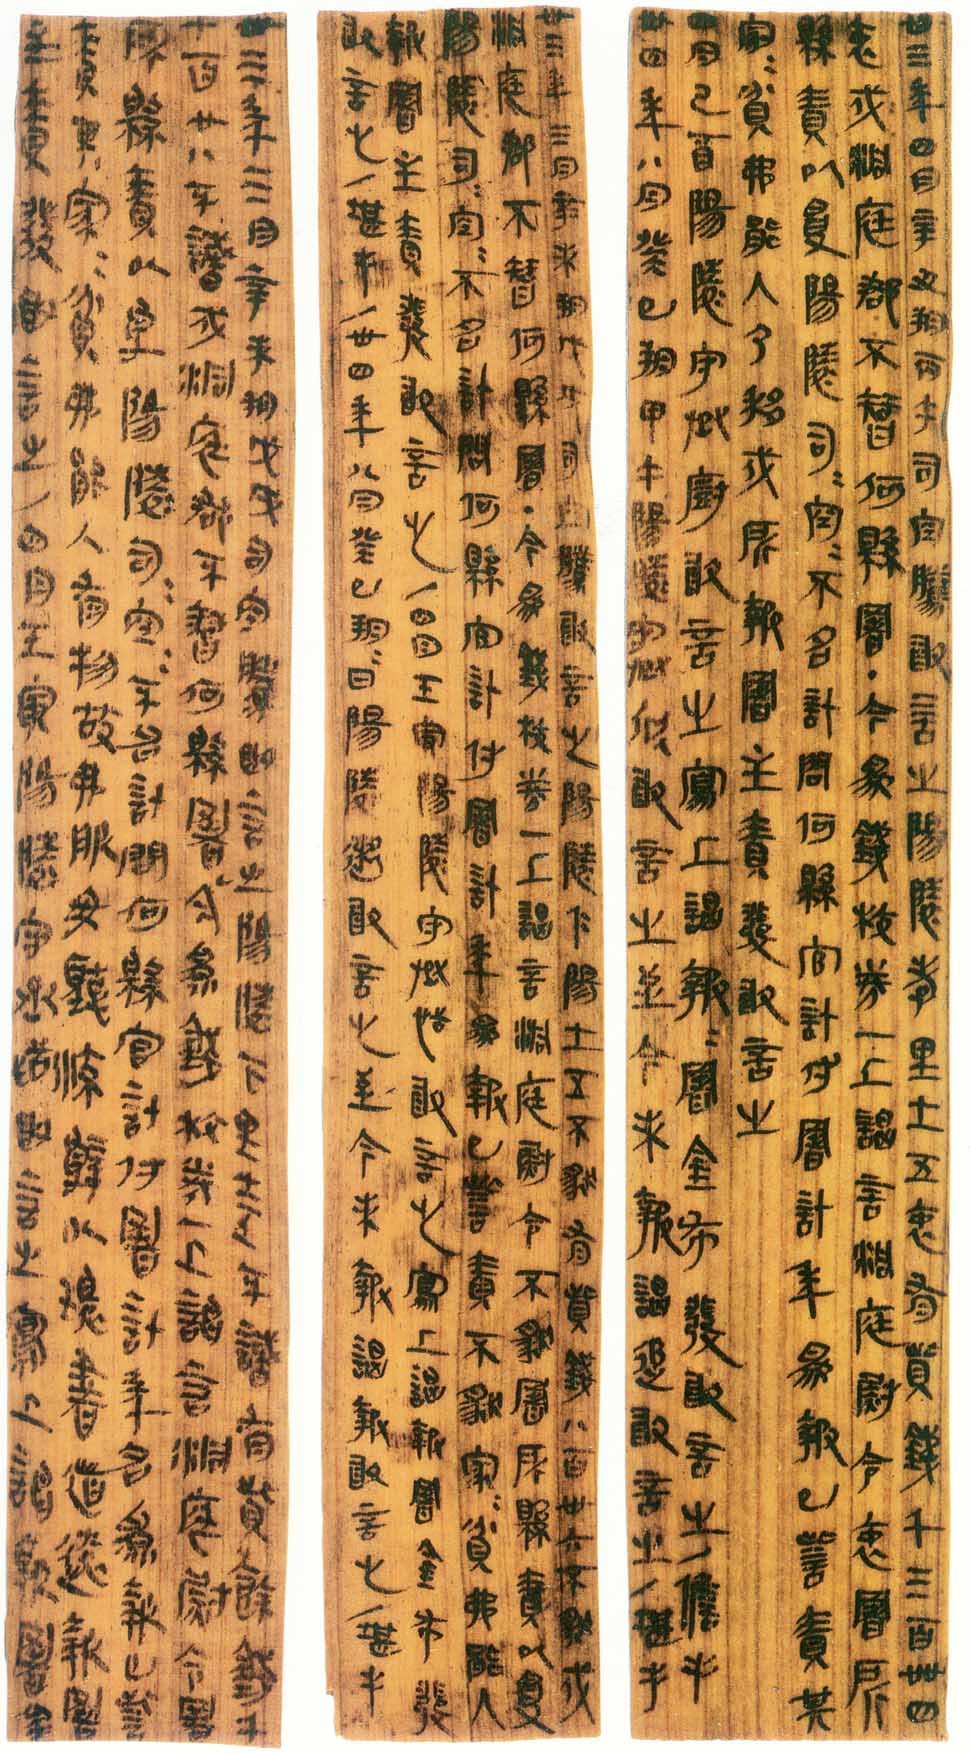 卅三年四月辛丑朔丙午司空騰敢言之陽陵孝里士五衷有貲錢千三百卌四
衷戍洞庭郡不智何縣署·今為錢校券一上謁言洞庭尉令衷署所
縣責以受陽陵司〓空〓不名計問何縣官計付署計年為報已訾責其
家〓貧弗能入乃移戍所報署主責發敢言之
四月己酉陽陵守丞廚敢言之寫上謁報〓署金布發敢言之/儋手
卅四年八月癸巳朔甲午陽陵守丞欣敢言之至今未報謁追敢言之/堪手
卅三年三月辛未朔戊戌司空騰敢言之陽陵仁陽士五不豺有貲錢八百卅六不豺戍
洞庭郡不智何縣署·今為錢校券一上謁言洞庭尉令不豺署所縣責以受
陽陵司〓空〓不名計問何縣官計付署計年為報已訾責不豺家〓貧弗能入
報署主責發敢言之/四月壬寅陽陵守丞恬敢言之寫上謁報署金布發
敢言之/堪手/卅四年八月癸巳朔〓日陽陵遬敢言之至今未報謁報敢言之/堪手
卅三年三月辛未朔戊戌司空騰敢言之陽陵下里士五不識有貲餘錢千
七百廿八不識戍洞庭郡不智何縣署今為錢校券一上謁言洞庭尉令署
所縣責以受陽陵司〓空〓不名計問何縣官計付署計年名為報已訾
責其家〓貧弗能入有物故弗服毋聽流辭以環書道遠報署
主責發敢言之/四月壬寅陽陵守丞恬敢言之寫上謁報署金